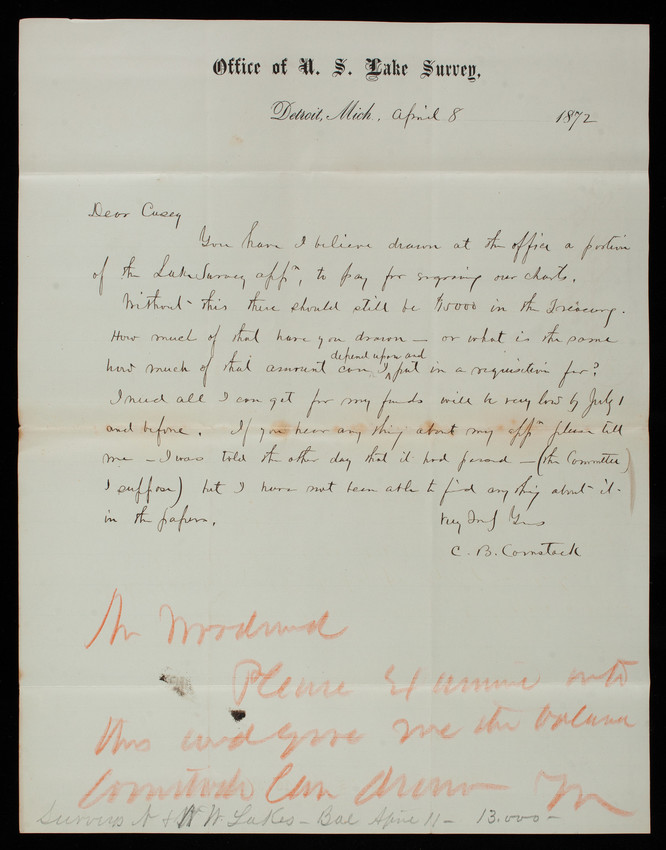 Office of U. S. Lake Survey,
Detroit, Mich., April 8 1872
Dear Casey
You have I believe drawn at the office a portion
of the Lake Survey appn, to pay for engraving our charts.
Without this there should still be $15000 in the Treasury.
How much of that have you drawn — or what is the same
how much of that amount can I depend upon and put in a requisition for?
I need all I can get for my funds will be very low by July 1
and before. If you hear any thing about my appn please tell
me — I was told the other day that it had passed — (the Committee
I suppose) but I have not been able to find any thing about it
in the papers.
Very Truly Yrs
C. B. Comstock
Mr Woodward
Please Examine into
this and give me the balance
Comstock Can draw
Surveys N & N W. Lakes — Bal April 11 — 13.000 —